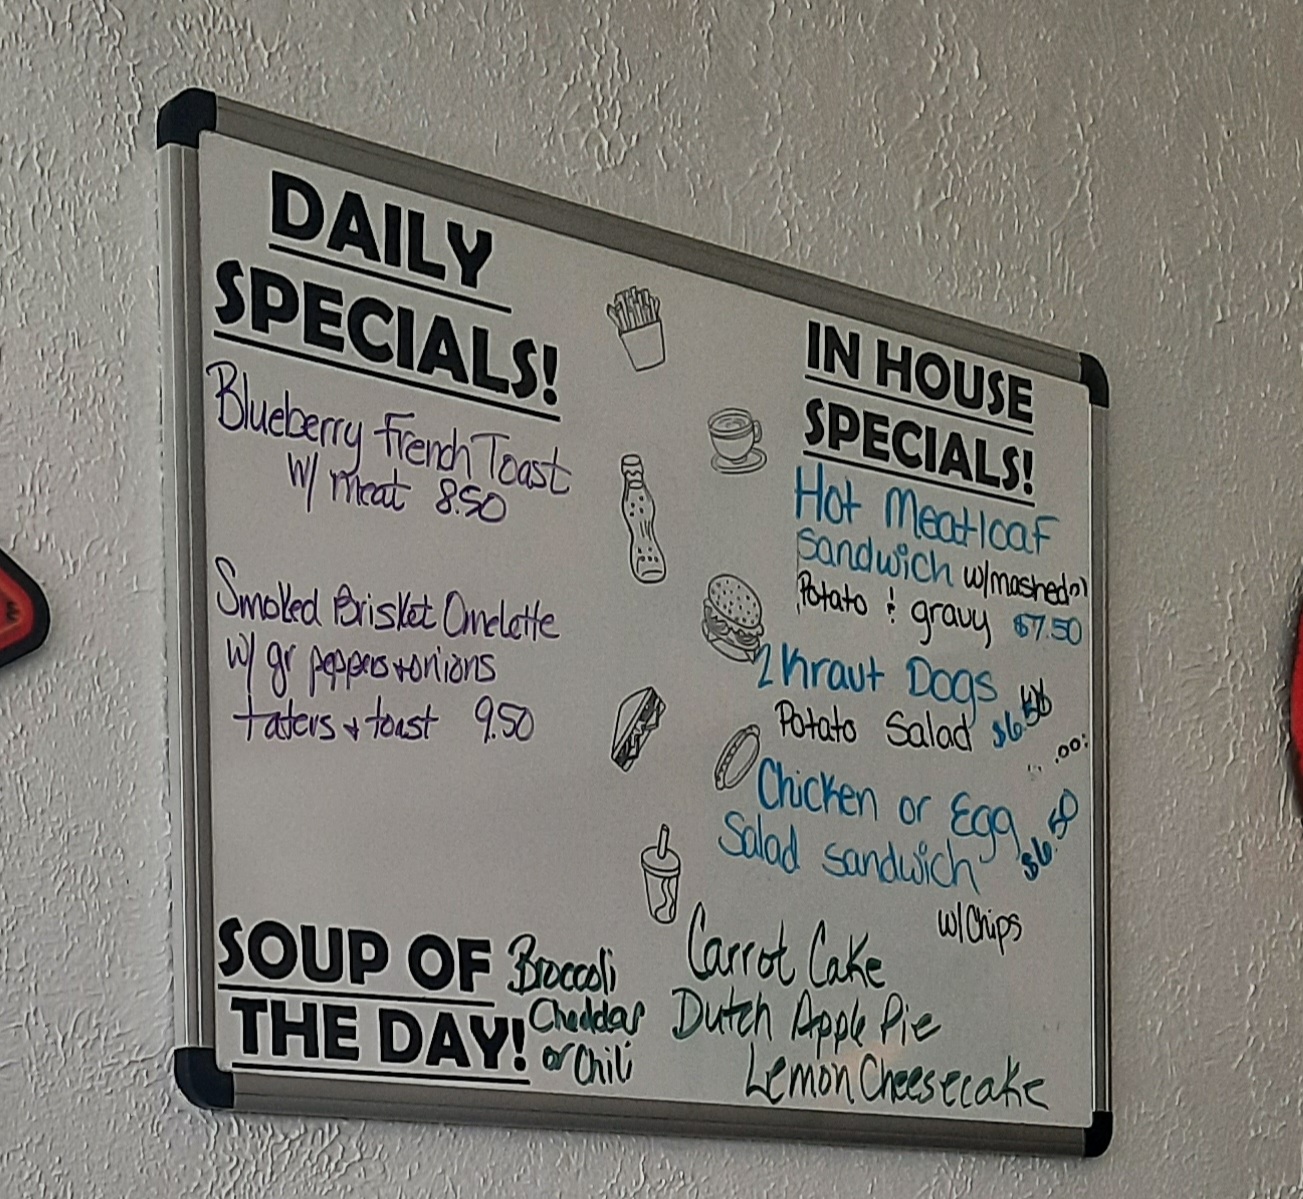 DAILY
SPECIALS!
Blueberry French Toast
w/ meat 8.50
Smoked Brisket Omelette
w/ gr peppers + onions
taters + toast 9.50
SOUP OF
THE DAY!
Broccoli
Cheddar
or Chili
IN HOUSE
SPECIALS!
Hot Meatloaf
Sandwich w/mashed
Potato & gravy $7.50
2 Kraut Dogs
Potato Salad $6.50
Chicken or Egg
Salad Sandwich $6.50
w/Chips
Carrot Cake
Dutch Apple Pie
Lemon Cheesecake